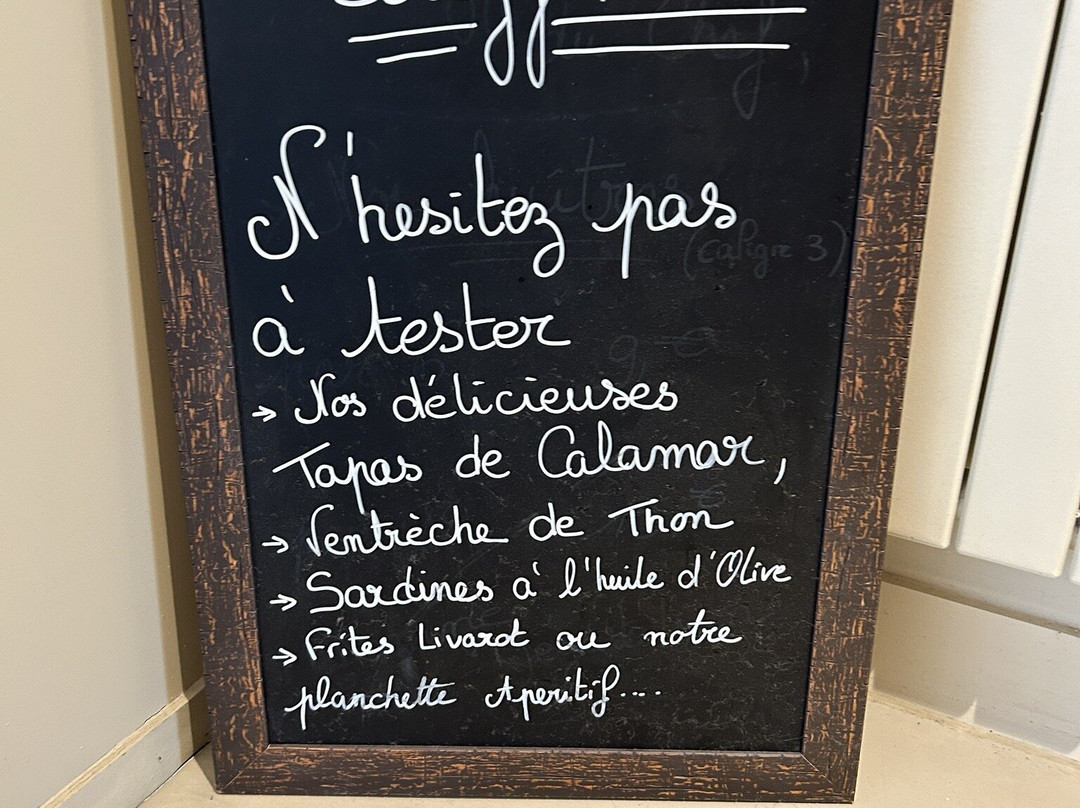 N'hesitez pas
(calibre 3)
à tester
9 €
→ Nos délicieuses
Tapas de Calamar,
→ Ventrèche de Thon
→ Sardines à l'huile d'Olive
→ Frites Livarot ou notre
planchette Aperitif....